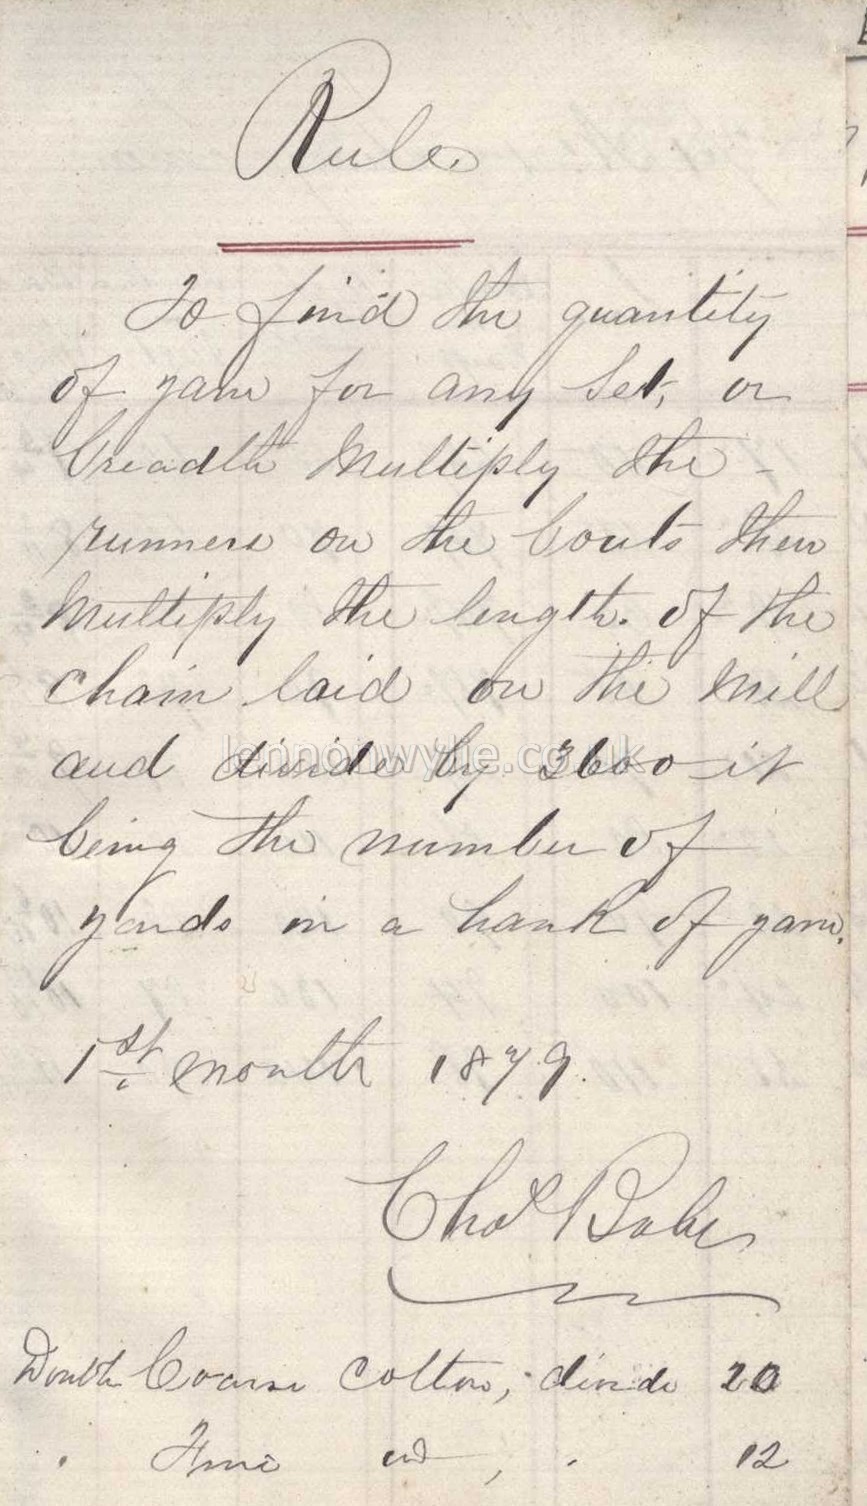 Rule
To find the quantity
of yarn for any Set, or
breadth Multiply the -
runners on the bouts then
Multiply the length. of the
chain laid on the Mill
and divide by 3600 it
being the number of
yards in a hank of yarn.
lennonwylie.co.uk
1st month 1879.
Chas
Double Coarse Cotton, divide 20
" Fine " , " 12